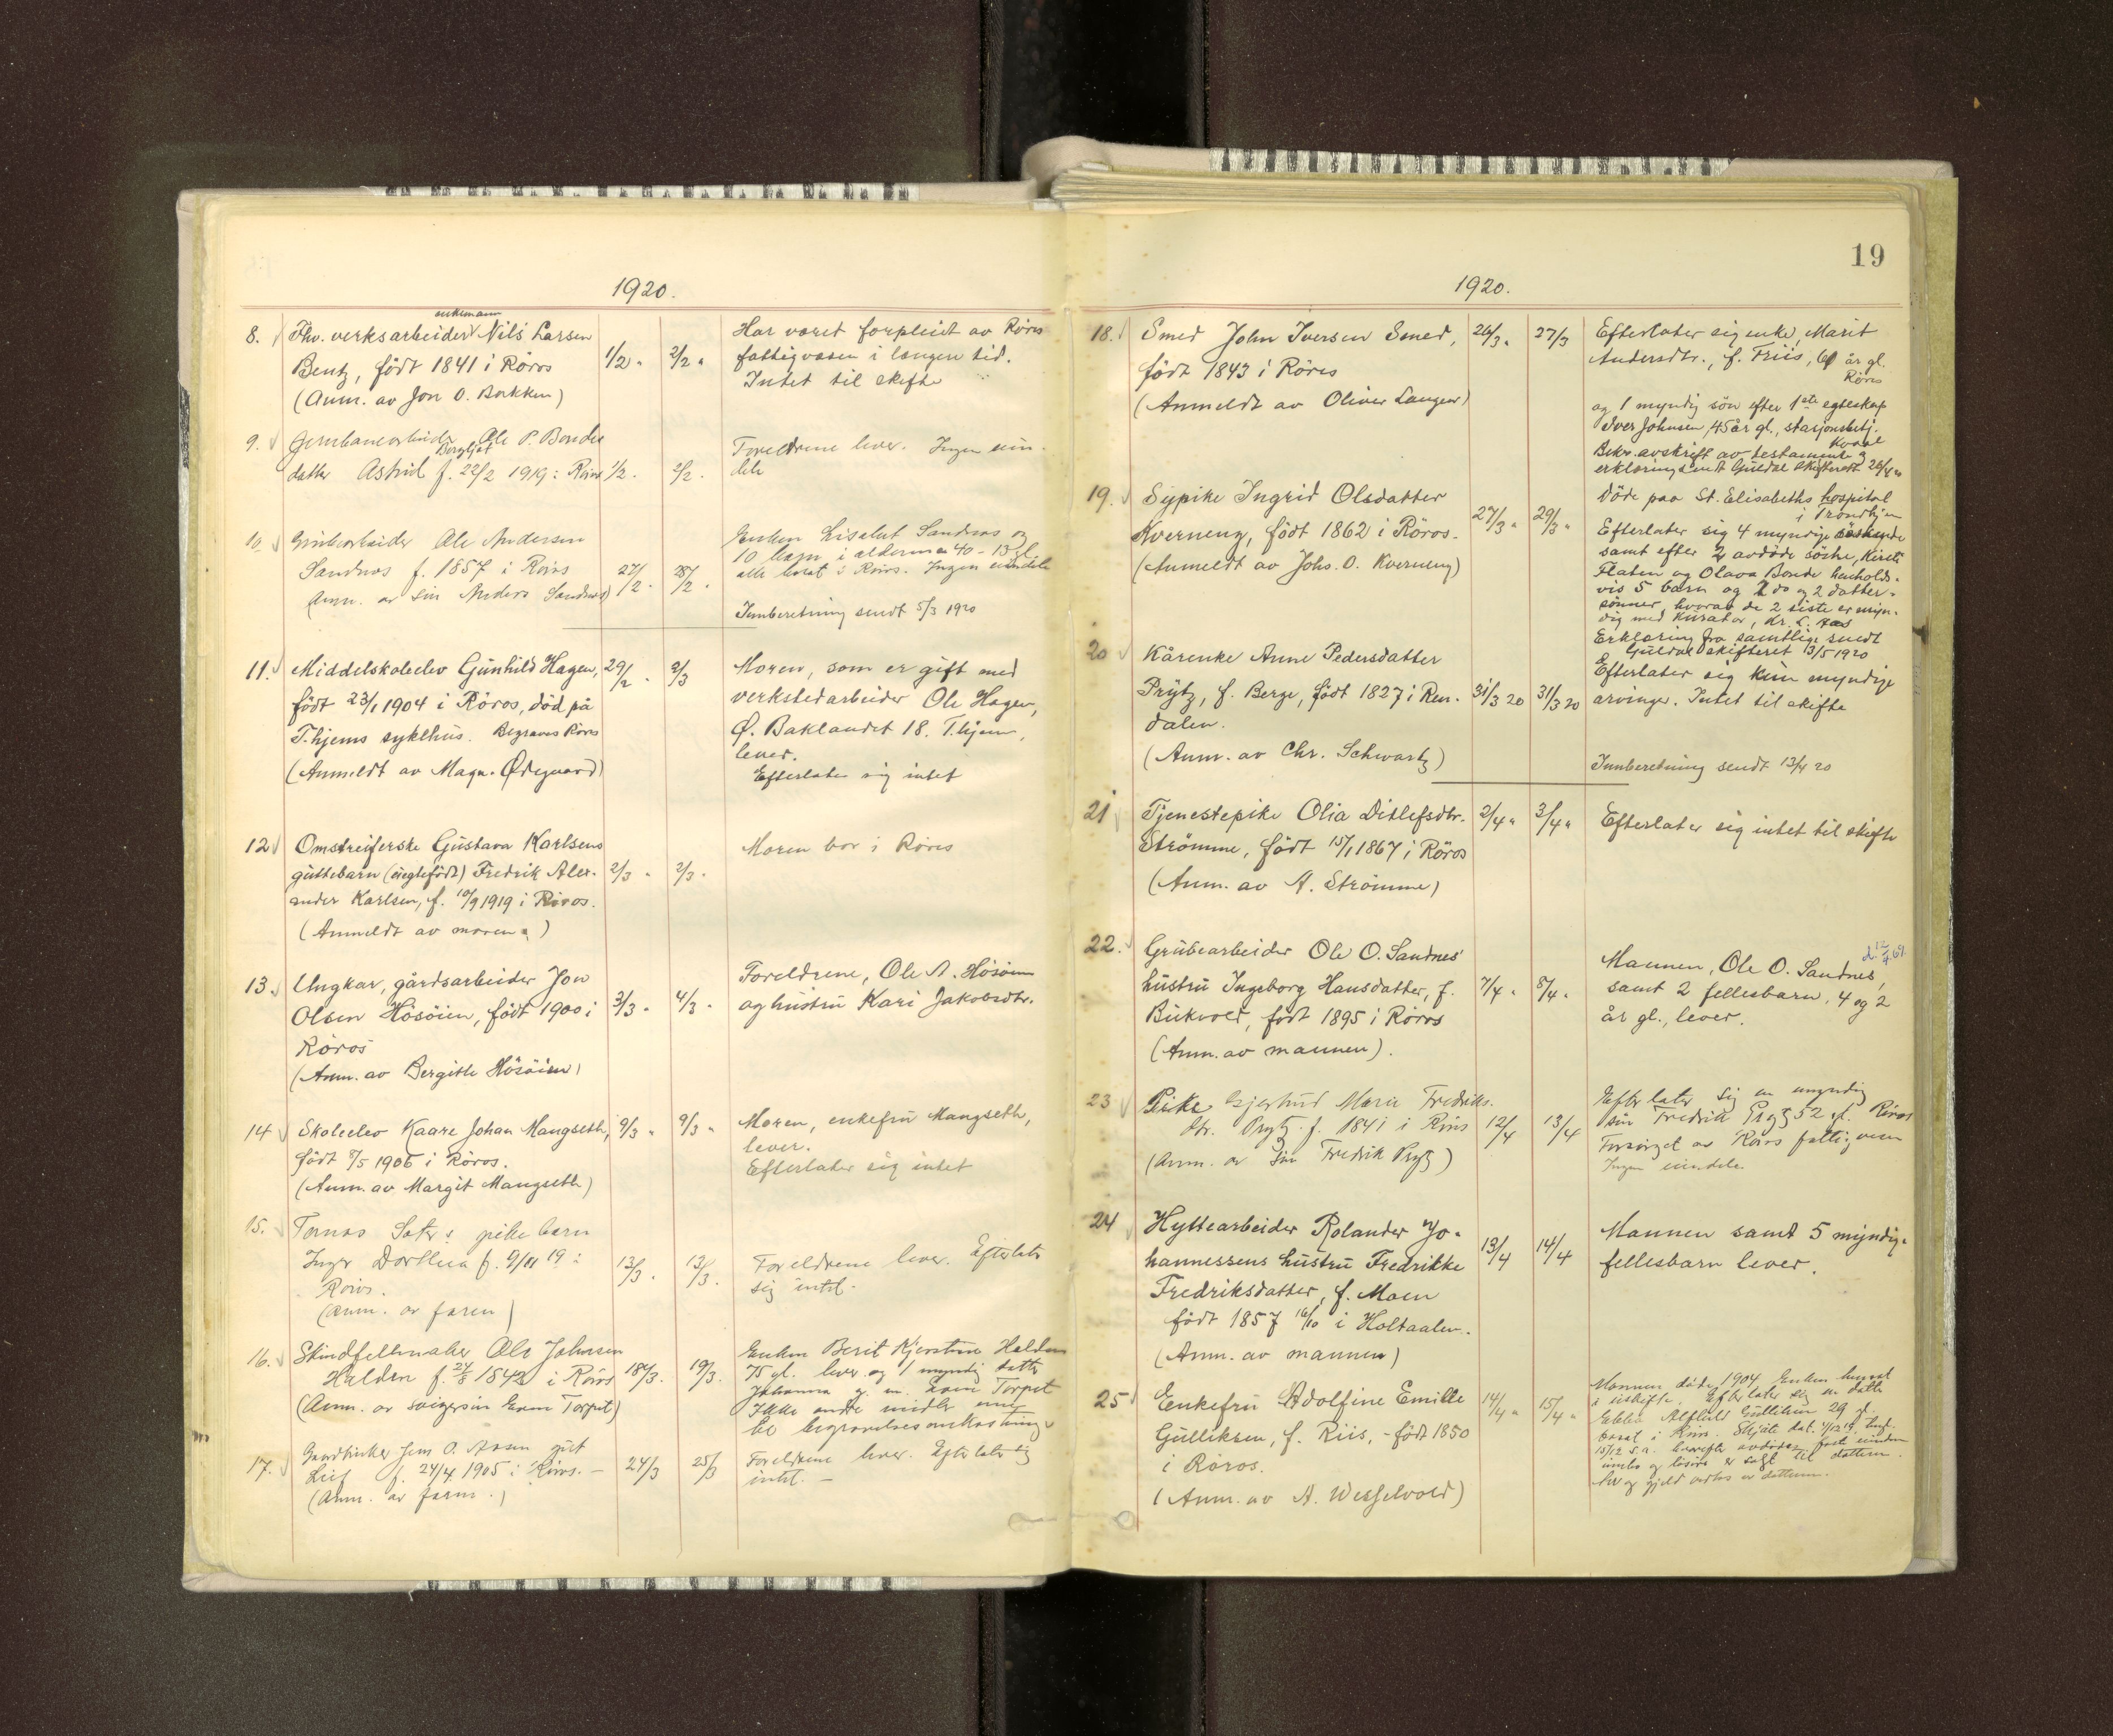 1920.
8. Fhv. verksarbeider enkemann Nils Larsen
Bentz, født 1841 i Röros
(Anm. av Jon O. Bakken)
1/2 "
2/2 "
Har været forpleiet av Röros
fattigvæsen i længere tid.
Intet til skifte
9. Jernbanearbeider Ole P. Bondes
datter Astrid Bergljot f. 22/2 1919 i Röros
1/2 .
2/2 .
Foreldrene lever. Ingen eien-
dele
10. Grubearbeider Ole Andersen
Sandnes f. 1857 i Röros
Anm. av sön Anders Sandnes)
27/2 .
28/2 .
Enken Lisabet Sandnes og
10 barn i alderen 40 - 13 gl.
alle bosat i Röros. Ingen eiendele
Innberetning sendt 5/3 1920
11. Middelskoleelev Gunhild Hagen,
født 23/1 1904 i Röros, död på
T.hjems sykehus. Begraves Röros
(Anmeldt av Magn. Ødegaard)
29/2 .
2/3
Moren, som er gift med
verkstedarbeider Ole Hagen,
Ø. Baklandet 18. T.hjem,
lever.
Efterlater sig intet
12 Omstreiferske Gustava Karlsens
guttebarn (uegtefödt) Fredrik Alex-
ander Karlsen, f. 10/9 1919 i Röros.
(Anmeldt av moren)
2/3 .
2/3 .
Moren bor i Röros
13. Ungkar, gårdsarbeider Jon
Olsen Hösöien, født 1900 i
Röros
(Anm. av Bergitte Hösöien)
3/3 .
4/3 .
Foreldrene, Ole A. Hösöien
og hustru Kari Jakobsdtr.
14 Skoleelev Kaare Johan Mangseth,
født 8/5 1906 i Röros.
(Anm. av Margit Mangseth)
9/3 "
9/3 "
Moren, enkefru Mangseth,
lever.
Efterlater sig intet
15. Tomas pikebarn
Inger Dorthea f. 9/11 19 i
Röros.
(Anm. av faren)
13/3 .
13/3 .
Foreldrene lever. Efterlater
sig intet.
16. Skindfellmaker Ole Johnsen
Halden f. 24/8 1842 i Röros
(Anm. av svigersön Even Torpet)
18/3 .
19/3 .
Enken Berit Kjerstine Halden
75 gl. lever og 1 myndig datter
Johanna g. m. Even Torpet
Ikke andre midler enn
til begravelsesomkostninger
17. Gaardbruker Jens O. Aasen gut
Leif f. 24/4 1905 i Röros. -
(Anm. av faren.)
24/3
25/3
Foreldrene lever. Efterlater sig
intet. -
19
1920.
18. Smed John Iversen Smed,
født 1843 i Röros
(Anmeldt av Oliver Langen)
26/3 "
27/3
Efterlater sig enke, Marit
Andersdtr., f. Friis, år gl.
Röros
og 1 myndig sön efter 1ste egteskap
Iver Johnsen, 45 år gl., stasjonsbetj.
Kvaal
Bekr. avskrift av testamente og
erklæring sendt Guldal skifterett 26/4 20
19. Sypike Ingrid Olsdatter
Kverneng, født 1862 i Röros.
(Anmeldt av Johs. O. Kverneng)
27/3 "
29/3 "
Döde paa St. Elisabeths hospital
i Trondhjem
Efterlater sig 4 myndige söskende
samt efter 2 avdöde söstre, Kirsti
Flaten og Olava Bonde henholds-
vis 5 barn og 2 do og 2 datter-
sönner, hvorav de 2 siste er myn-
dig med kurator, Kr. L. Aas
Erklæring fra samtlige sendt
Guldal skifteret 13/5 1920
20 Kårenke Anne Pedersdatter
Prytz, f. Berge, født 1827 i Ren-
dalen.
(Anm. av Chr. Schwartz)
31/3 20
31/3 20
Efterlater sig kun myndige
arvinger. Intet til skifte
Innberetning sendt 13/4 20
21 Tjenestepike Olia Ditlefsdtr.
Strömme, født 15/1 1867 i Röros
(Anm. av A. Strömme)
2/4 "
3/4 "
Efterlater sig intet til skifte
22. Grubearbeider Ole O. Sandnes'
hustru Ingeborg Hansdatter, f.
Bukvold, født 1895 i Röros
(Anm. av mannen).
7/4 "
8/4 "
Mannen, Ole O. Sandnes, d. 12/4.69.
samt 2 fellesbarn, 4 og 2
år gl., lever.
23 Pike Gjertrud Marie Fredriks-
dtr. Prytz f. 1841 i Röros
(Anm. av sön Fredrik Prytz)
12/4
13/4
Efterlater sig en myndig
sön Fredrik Prytz 52 gl. Röros
Forsörget av Röros fattigvesen
Ingen eiendele
24 Hyttearbeider Rolander Jo-
hannessens hustru Fredrikke
Fredriksdatter, f. Moen
født 1857 16/10 i Holtaalen.
(Anm. av mannen)
13/4
14/4
Mannen samt 5 myndige
fellesbarn lever.
25 Enkefru Adolfine Emilie
Gulliksen, f. Riis, - født 1850
i Röros.
(Anm. av A. Wesselvold)
14/4 "
15/4 "
Mannen döde 1904. Enken hensat
i uskifte. Efterlater sig en datter
Ebba Alfhild Gulliksen 29 gl.
bosat i Röros. Skjöte dat. 4/12 19
15/12 s. a. hvorefter avdödes faste eiendom
innbo og lösöre er solgt til datteren
Arv og gjeld vedtas av datteren.